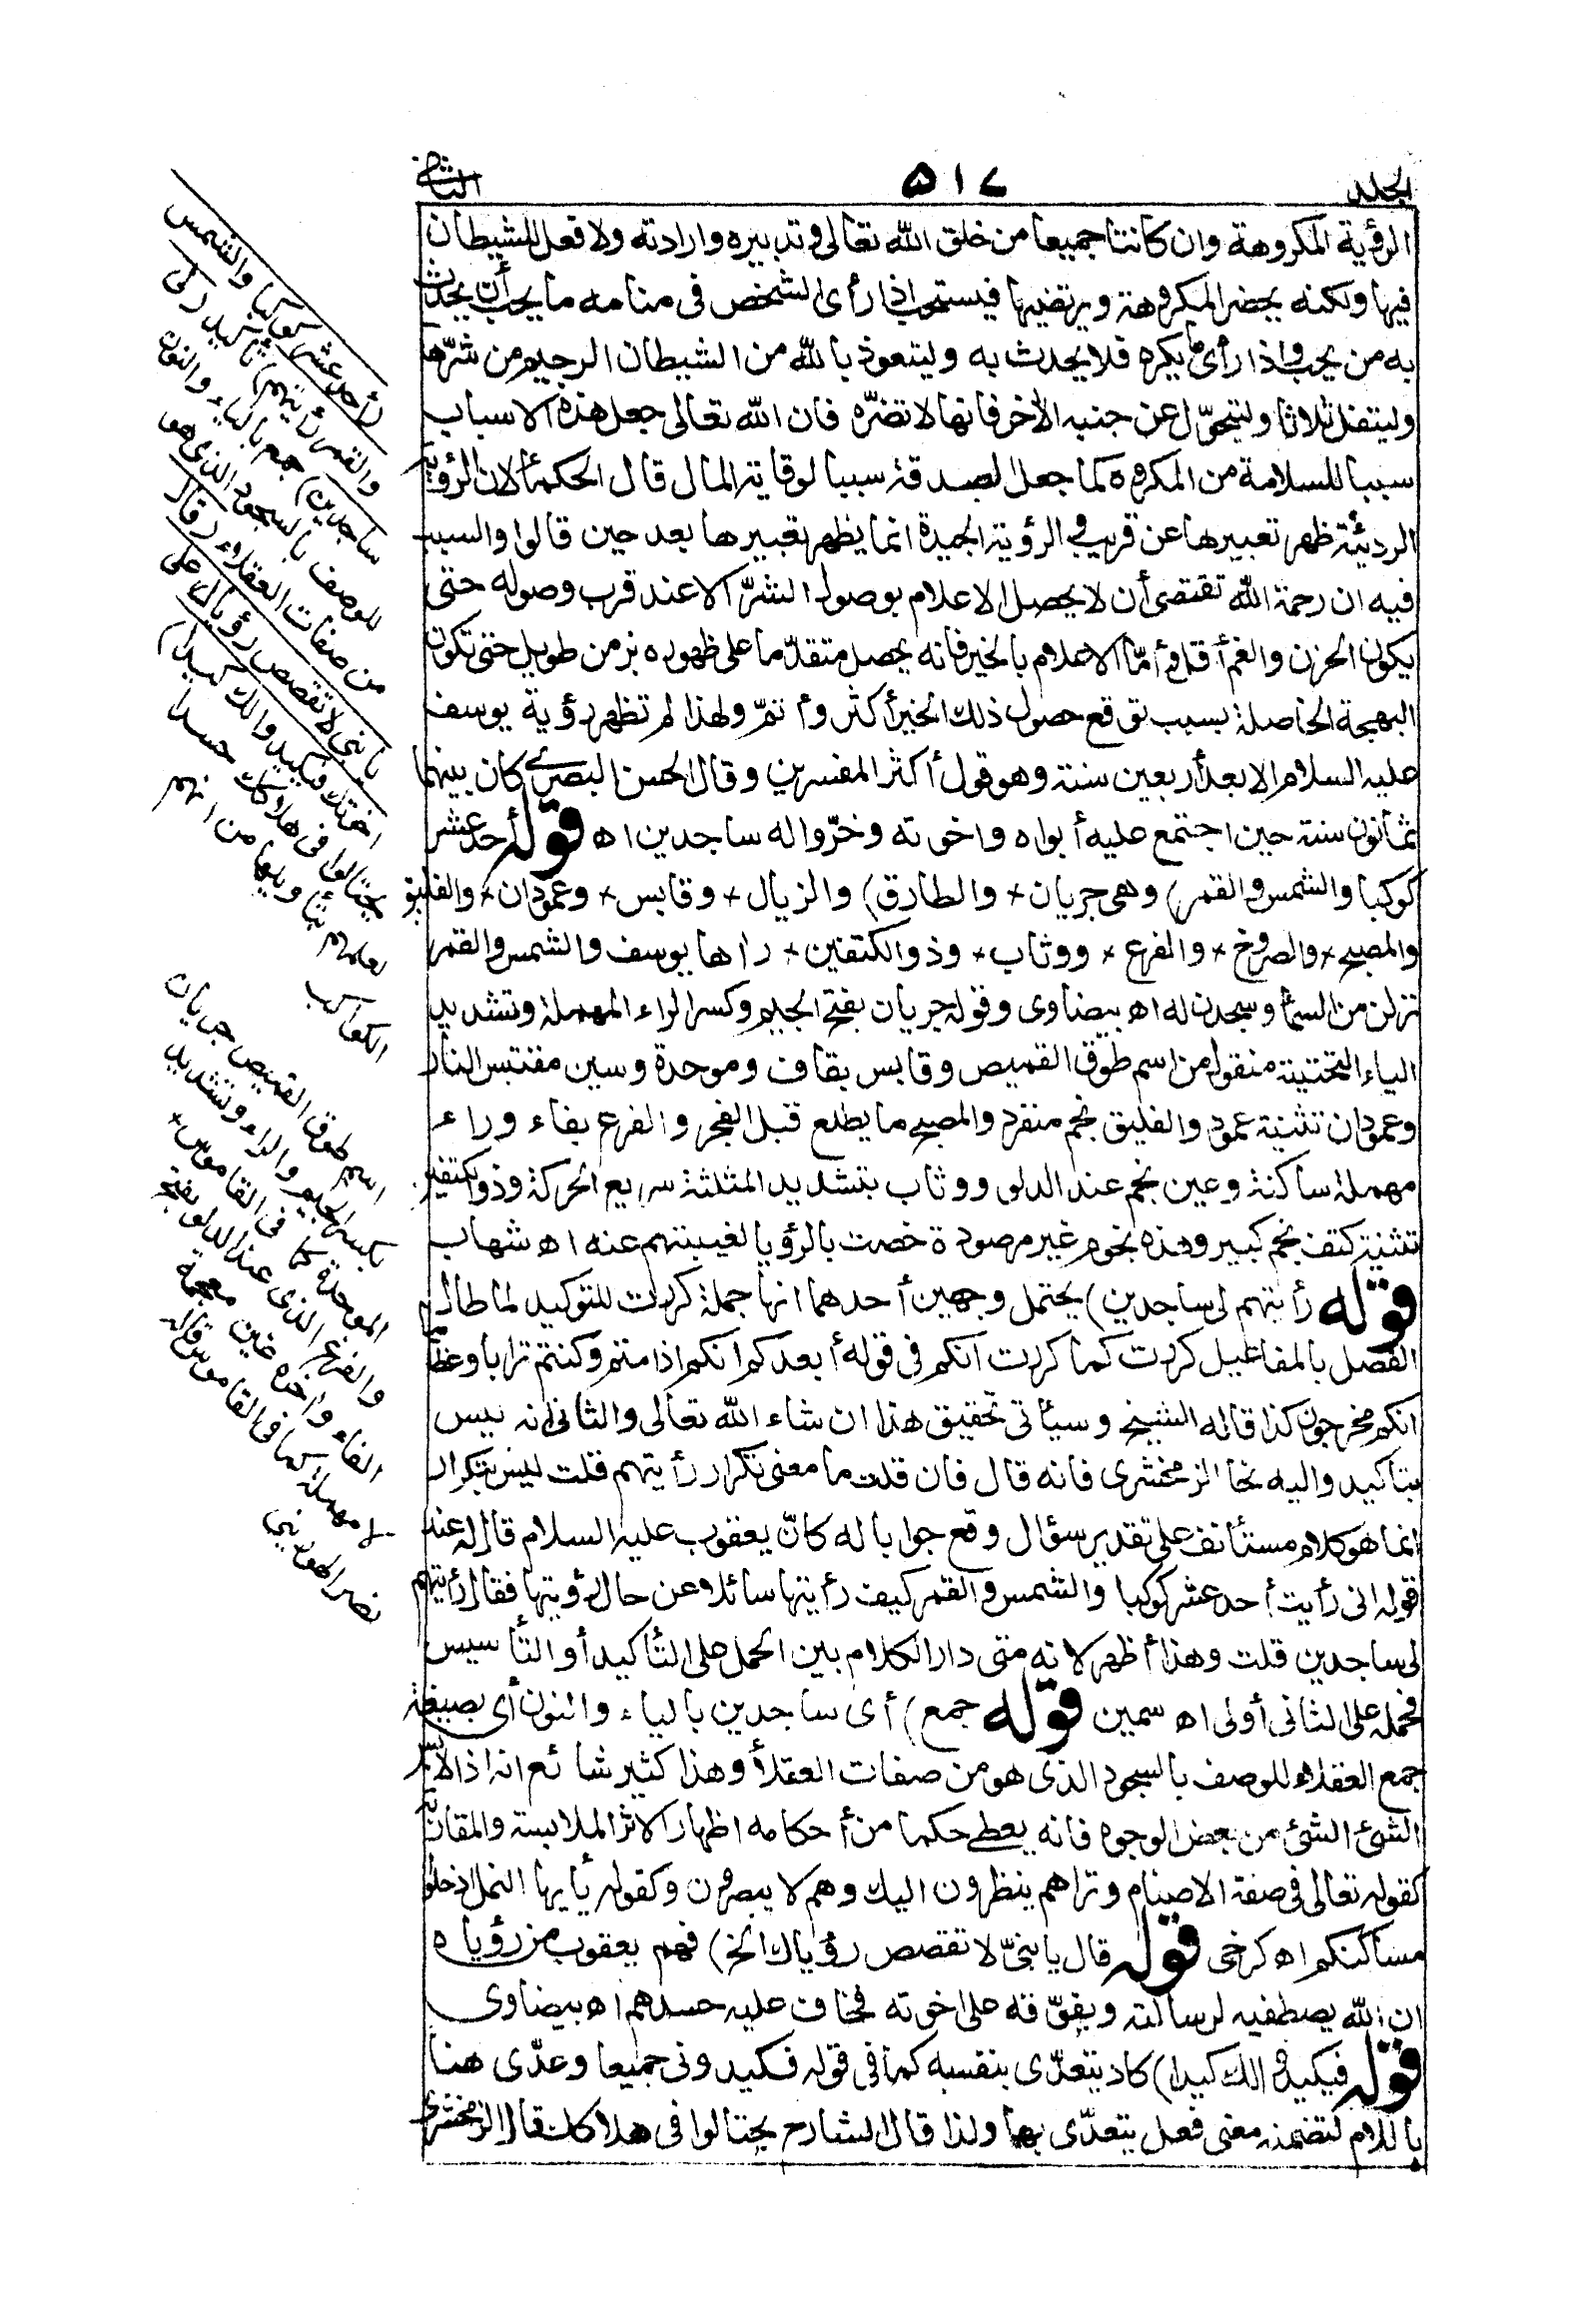 الجلد ٥١٧ الثانى
الرؤية المكروهة وان كانتا جميعا من خلق الله تعالى وتدبيره وارادته ولا فعل للشيطان
فيها ولكنه يحضر المكروهة ويرتضيها فيستحب اذا رأى الشخص فى منامه ما يحب أن يحدث
به من يحب واذا رأى ما يكره فلا يحدث به وليتعوذ بالله من الشيطان الرجيم من شرّها
وليتفل ثلاثا وليتحوّل عن جنبه الأخر فانها لا تضرّه فان الله تعالى جعل هذه الاسباب
سببا للسلامة من المكروه كما جعل الصدقة سببا لوقاية المال قال الحكمأ لان الرؤية
الرديئة ظهر تعبيرها عن قريب و الرؤية الجيدة انما يظهر تعبيرها بعد حين قالوا والسبب
فيه ان رحمة الله تقتضى أن لا يحصل الاعلام بوصول الشرّ الا عند قرب وصوله حتى
يكون الحزن والغم أقل وأمّا الاعلام بالخير فانه يحصل متقدّما على ظهوره بزمن طويل حتى تكون
البهجة الحاصلة بسبب توقع حصول ذلك الخير أكثر وأتمّ ولهذا لم تظهر رؤية يوسف
عليه السلام الا بعد أربعين سنة وهو قول أكثر المفسرين وقال الحسن البصرى كان بينهما
ثمانون سنة حين اجتمع عليه أبواه واخوته وخرّوا له ساجدين اه قوله أحد عشر
كوكبا والشمس والقمر) وهى جريان + والطارق) والزيال + وقابس + وعمودان + والفليق
والمصبح + والصروخ + والفرع + ووثاب + وذو الكتفين + راها يوسف والشمس والقمر
نزلن من السمأ وسجدن له اه بيضاوى وقوله جريان بفتح الجيم وكسر الراء المهملة وتشديد
الياء التحتية منقول من اسم طوق القميص وقابس بقاف وموحدة وسين مقتبس النار
وعمودان تثنية عمود والفليق نجم منفرد والمصبح ما يطلع قبل الفجر والفرع بفاء وراء
مهملة ساكنة وعين نجم عند الدلو ووثاب بتشديد المثلثة سريع الحركة وذو الكتفين
تثنية كتف نجم كبير وهذه نجوم غير مرصودة خصت بالرؤيا لغيبتهم عنه اه شهاب
قوله رأيتهم لى ساجدين) يحتمل وجهين أحدهما انها جملة كررت للتوكيد لما طال
الفصل بالمفاعيل كررت كما كررت انكم فى قوله أيعدكم انكم اذا متم وكنتم ترابا وعظاما
انكم مخرجون كذا قاله الشيخ وسيأتى تحقيق هذا ان شاء الله تعالى والثانى انه ليس
بتأكيد واليه نحا الزمخشرى فانه قال فان قلت ما معنى تكرار رأيتهم قلت ليس بتكرار
انما هو كلام مستأنف على تقدير سؤال وقع جوابا له كانّ يعقوب عليه السلام قال له عند
قوله انى رأيت أحد عشر كوكبا والشمس والقمر كيف رأيتها سائلا عن حال رؤيتها فقال رأيتهم
لى ساجدين قلت وهذا أظهر لانه متى دار الكلام بين الحمل على التأكيد أو التأسيس
فحمله على الثانى أولى اه سمين قوله جمع) أى ساجدين بالياء والنون أى بصيغة
جمع العقلاء للوصف بالسجود الذى هو من صفات العقلأ وهذا كثير شائع انه اذا لابس
الشئ الشئ من بعض الوجوه فانه يعطى حكما من أحكامه اظهار الاثر الملابسة والمقاربة
كقوله تعالى فى صفة الاصنام وتراهم ينظرون اليك وهم لا يبصرون وكقوله يأيها النمل ادخلوا
مساكنكم اه كرخى قوله قال يا بنىّ لا تقصص رؤياك الخ) فهم يعقوب من رؤياه
ان الله يصطفيه لرسالته ويفوّقه على اخوته فخاف عليه حسدهم اه بيضاوى
قوله فيكيدوا لك كيدا) كاد يتعدّى بنفسه كما فى قوله فكيدونى جميعا وعدّى هنا
باللام لتضمنه معنى فعل يتعدّى بها ولذا قال الشارح يحتالوا فى هلاكك قال الزمخشرى
(أحد عشر كوكبا والشمس
والقمر رأيتهم) تأكيد (لى
ساجدين) جمع بالياء والنون
للوصف بالسجود الذى هو
من صفات العقلاء (قال
يا بنى لا تقصص رؤياك على
اخوتك فيكيدوا لك كيدا)
يحتالوا فى هلاكك حسدا
لعلمهم بتأويلها من انهم
الكواكب
اسم طوق القميص جريان
بكسر الجيم والراء وتشديد
الموحدة كما فى القاموس +
والفرغ الذى عند الدلو بفتح
الفاء واخره غين معجمة
لا مهملة كما فى القاموس قاله
نصر الهورينى